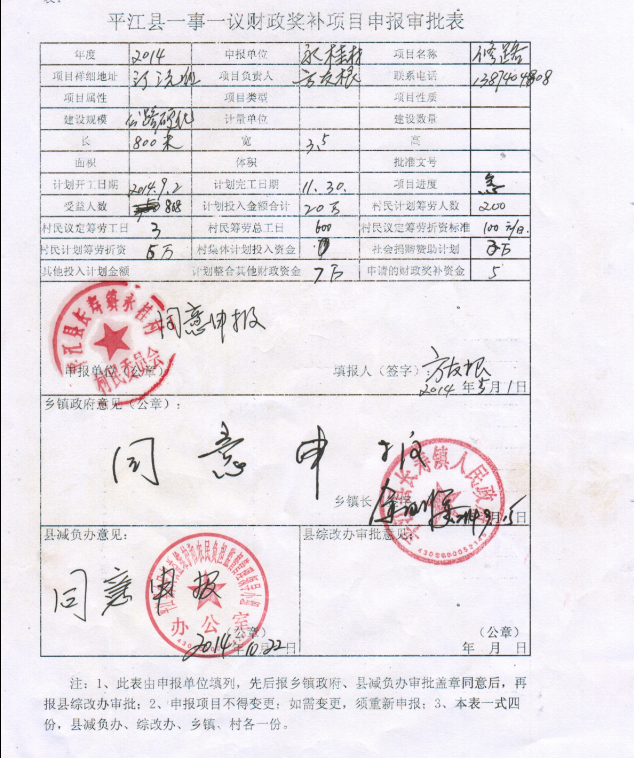 平江县一事一议财政奖补项目申报审批表
年度 2014 申报单位 永桂村 项目名称 修路
项目祥细地址 项目负责人 方友根 联系电话
项目属性 项目类型 项目性质
建设规模 公路硬化 计量单位 建设数量
长 800米 宽 3.5 高
面积 体积 批准文号
计划开工日期 2014.9.2 计划完工日期 11.30. 项目进度
受益人数 808 计划投入金额合计 20万 村民计划筹劳人数 200
村民议定筹劳工日 3 村民筹劳总工日 600 村民议定筹劳折资标准 100元/日.
村民计划筹劳折资 5万 村集体计划投入资金 社会捐购赞助计划 3万
其他投入计划金额 计划整合其他财政资金 7万 申请的财政奖补资金 5
同意申报
平江县长寿镇永桂村
村民委员会
申报单位（公章） 填报人（签字） 方友根
2014 年 5 月 1 日
乡镇政府意见（公章）：
同意申报
长寿镇人民政府
乡镇长
县减负办意见： 县综改办审批意见：
同意申报
办公室
（公章） （公章）
2014年10月22日 年 月 日
注：1、此表由申报单位填列，先后报乡镇政府、县减负办审批盖章同意后，再
报县综改办审批；2、申报项目不得变更；如需变更，须重新申报；3、本表一式四
份，县减负办、综改办、乡镇、村各一份。